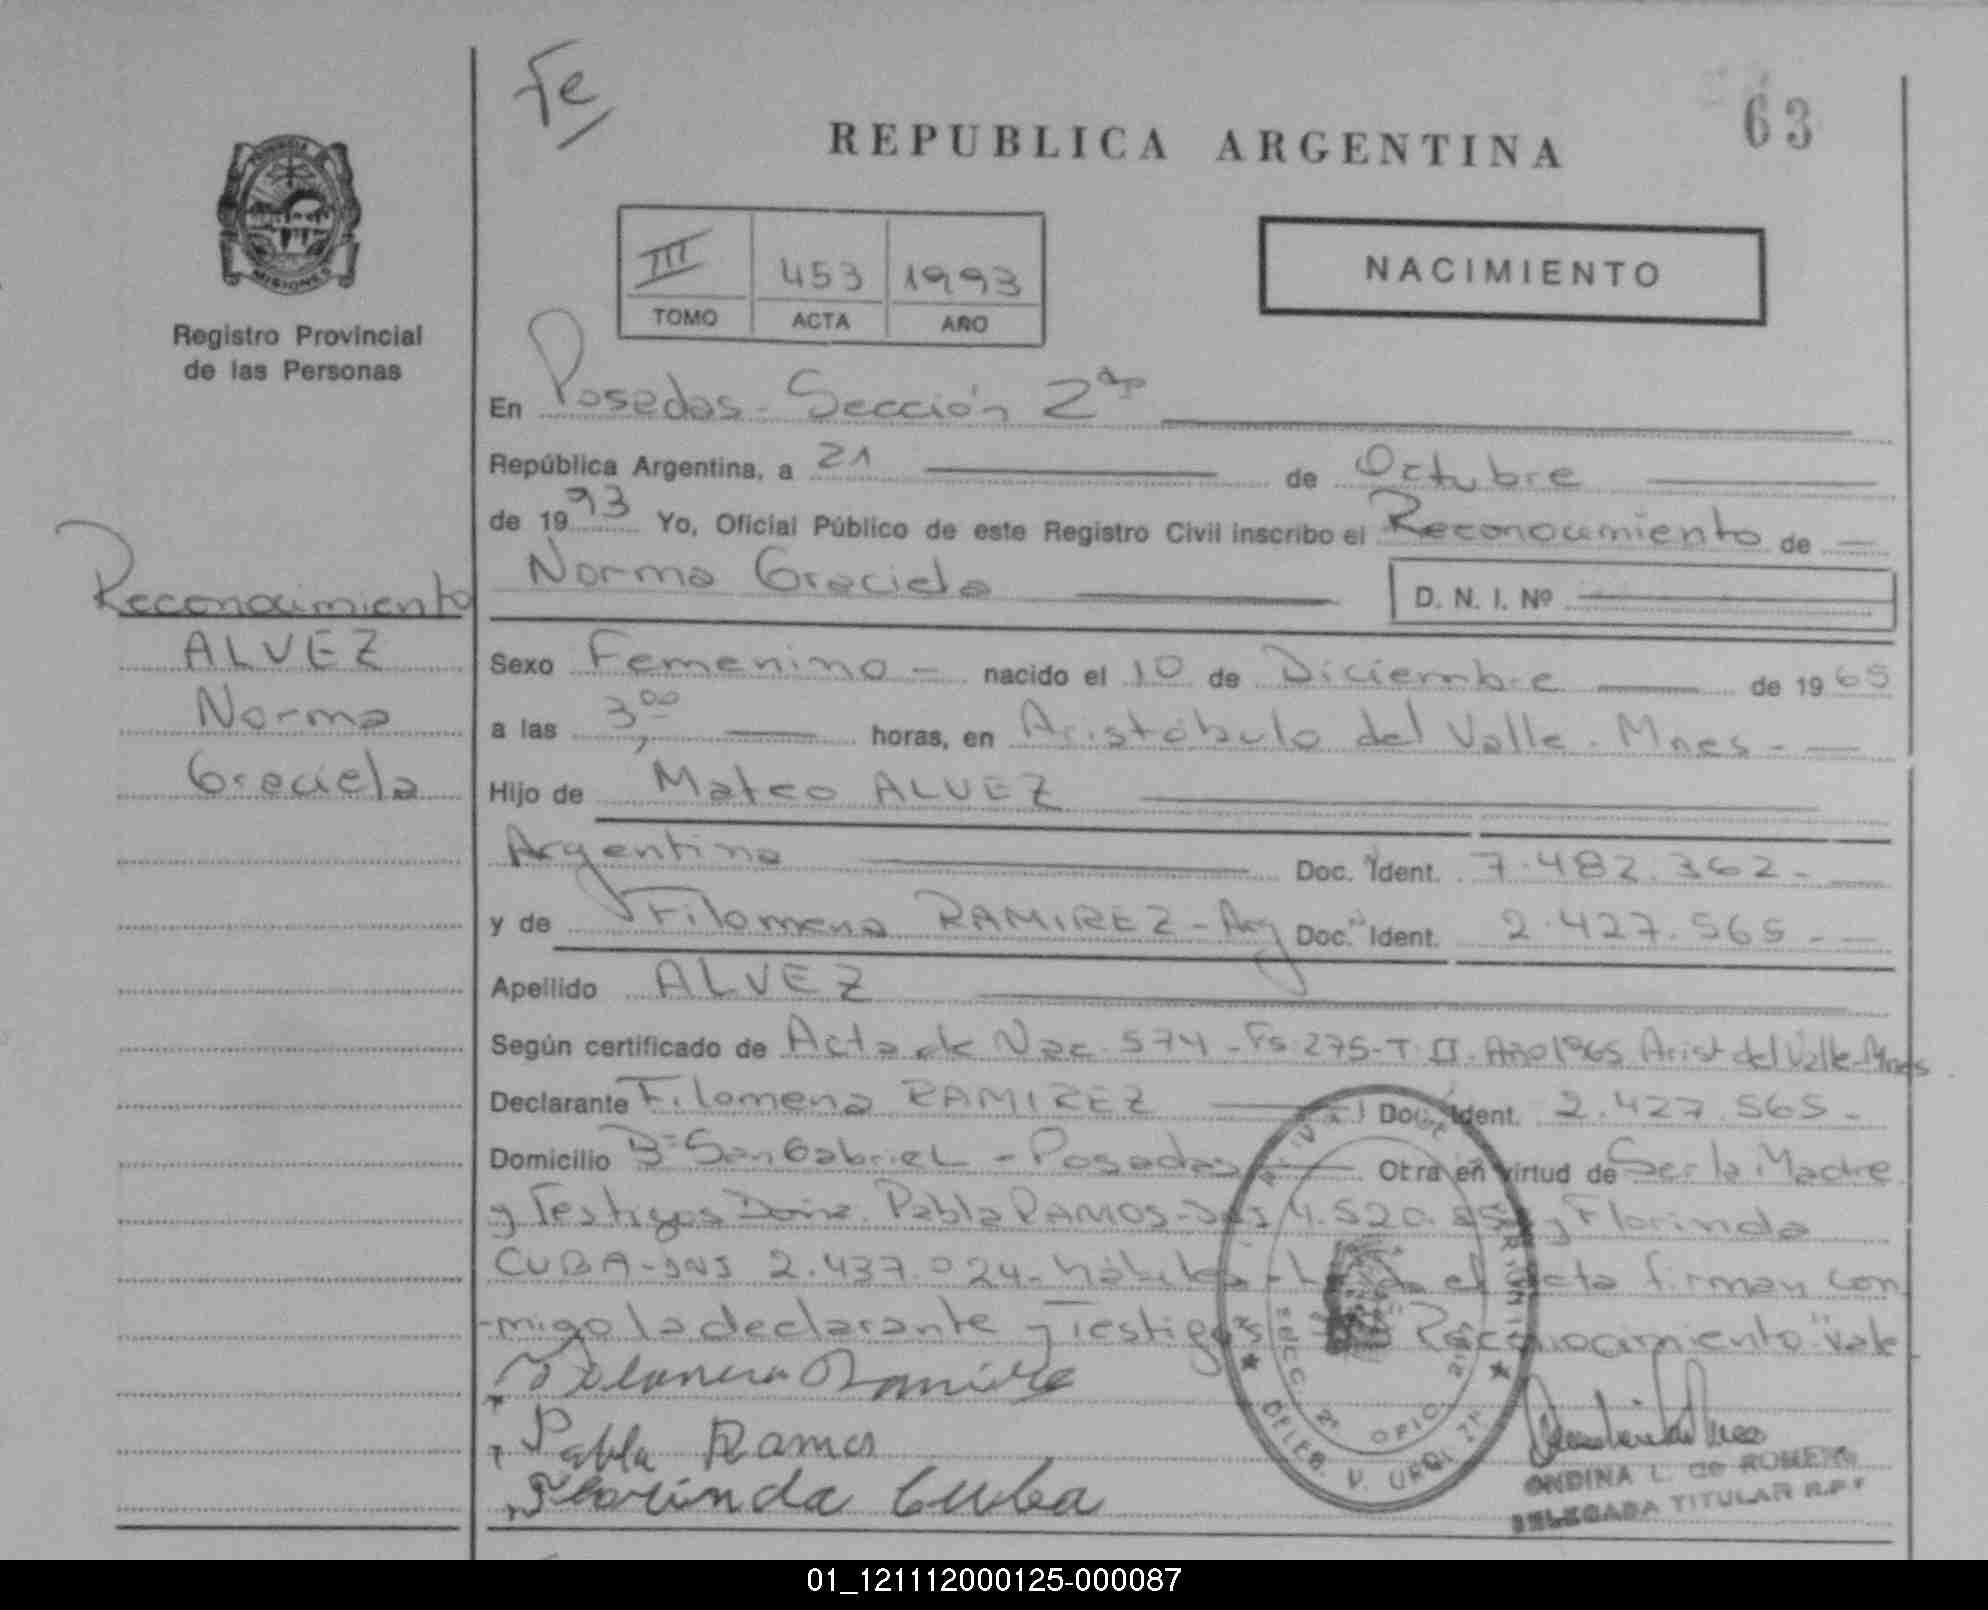 Fe
63
REPUBLICA ARGENTINA
III 453 1993
TOMO ACTA AÑO
NACIMIENTO
MISIONES
Registro Provincial
de las Personas
En Posadas - Sección 2da
República Argentina, a 21 de Octubre
de 1993 Yo, Oficial Público de este Registro Civil inscribo el Reconocimiento de
Norma Graciela D. N. I. Nº
Reconocimiento
ALVEZ
Norma
Graciela
Sexo Femenino - nacido el 10 de Diciembre de 1965
a las 3,00 horas, en Aristóbulo del Valle - Mnes -
Hijo de Mateo ALVEZ
Argentino Doc. Ident. 7.482.362 -
y de Filomena RAMIREZ - Arg Doc. Ident. 2.427.565 -
Apellido ALVEZ
Según certificado de Acta de Nac. 574 - Fs 275 - T. II - Año 1965 Arist del Valle - Mnes
Declarante Filomena RAMIREZ Doc. Ident. 2.427.565 -
Domicilio Bº San Gabriel - Posadas Obra en virtud de Ser la Madre
y Testigos Doña Pabla RAMOS - DNI 4.520. y Florinda
CUBA - DNI 2.437.024 - hábiles - el acta firman con
-migo la declarante y Testigos Reconocimiento "Vale
Filomena Ramirez
Pabla Ramos
Florinda Cuba
SECC. 2ª OFIC.
DELEG. V. URQUIZA
ONDINA L. de ROMERO
DELEGADA TITULAR R.P.
01_121112000125-000087